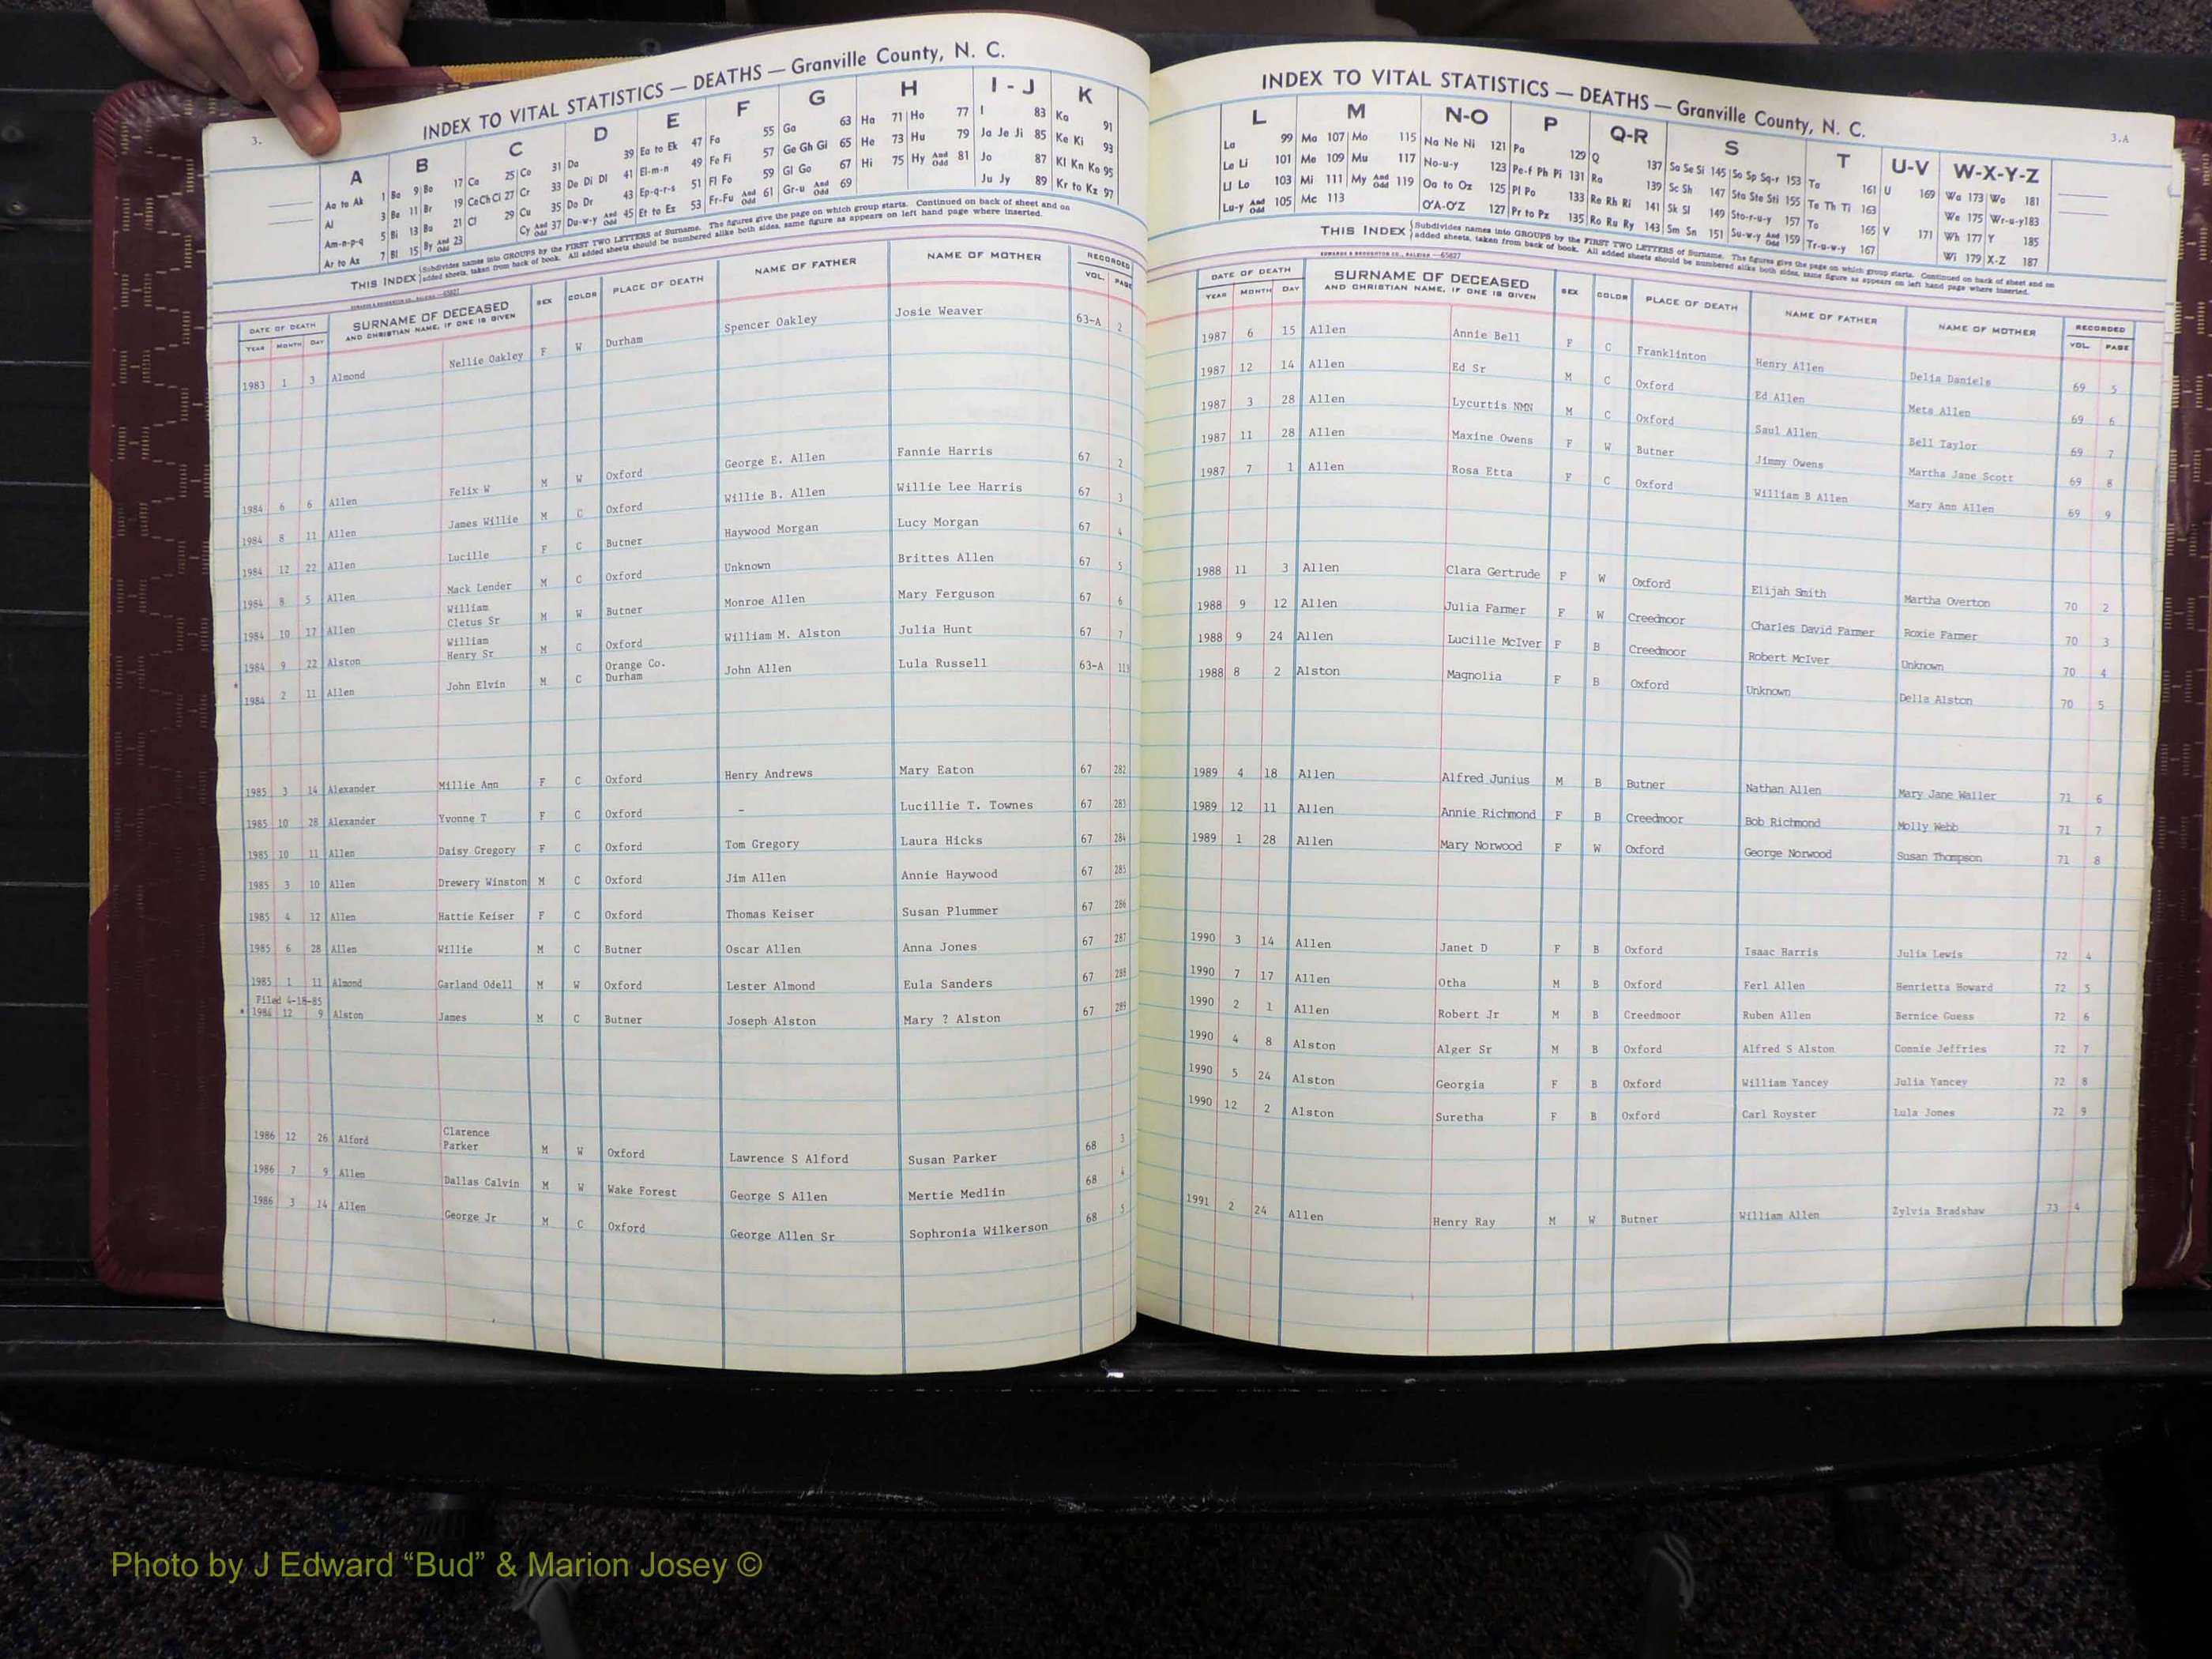 3.
INDEX TO VITAL STATISTICS — DEATHS — Granville County, N. C.
A B C D E F G H I - J K
Aa to Ak 1 Ba 9 Bo 17 Ca 25 Co 31 Da 39 Ea to Ek 47 Fa 55 Ga 63 Ha 71 Ho 77 I 83 Ka 91
Al 3 Be 11 Br 19 Ce Ch Ci 27 Cr 33 De Di Dl 41 El-m-n 49 Fe Fi 57 Ge Gh Gi 65 He 73 Hu 79 Ja Je Ji 85 Ke Ki 93
Am-n-p-q 5 Bi 13 Bu 21 Cl 29 Cu 35 Do Dr 43 Ep-q-r-s 51 Fl Fo 59 Gl Go 67 Hi 75 Hy And Odd 81 Jo 87 Kl Kn Ko 95
Ar to Az 7 Bl 15 By And Odd 23 Cy And Odd 37 Du-w-y And Odd 45 Et to Ez 53 Fr-Fu And Odd 61 Gr-u And Odd 69 Ju Jy 89 Kr to Kz 97
THIS INDEX Subdivides names into GROUPS by the FIRST TWO LETTERS of Surname. The figures give the page on which group starts. Continued on back of sheet and on
added sheets, taken from back of book. All added sheets should be numbered alike both sides, same figure as appears on left hand page where inserted.
DATE OF DEATH SURNAME OF DECEASED SEX COLOR PLACE OF DEATH NAME OF FATHER NAME OF MOTHER RECORDED
YEAR MONTH DAY AND CHRISTIAN NAME, IF ONE IS GIVEN VOL. PAGE
1983 1 3 Almond Nellie Oakley F W Durham Spencer Oakley Josie Weaver 63-A 2
1984 6 6 Allen Felix W M W Oxford George E. Allen Fannie Harris 67 2
1984 8 11 Allen James Willie M C Oxford Willie B. Allen Willie Lee Harris 67 3
1984 12 22 Allen Lucille F C Butner Haywood Morgan Lucy Morgan 67 4
1984 8 5 Allen Mack Lender M C Oxford Unknown Brittes Allen 67 5
1984 10 17 Allen William Cletus Sr M W Butner Monroe Allen Mary Ferguson 67 6
1984 9 22 Alston William Henry Sr M C Oxford William M. Alston Julia Hunt 67 7
* 1984 2 11 Allen John Elvin M C Orange Co. Durham John Allen Lula Russell 63-A 113
1985 3 14 Alexander Millie Ann F C Oxford Henry Andrews Mary Eaton 67 282
1985 10 28 Alexander Yvonne T F C Oxford - Lucillie T. Townes 67 283
1985 10 11 Allen Daisy Gregory F C Oxford Tom Gregory Laura Hicks 67 284
1985 3 10 Allen Drewery Winston M C Oxford Jim Allen Annie Haywood 67 285
1985 4 12 Allen Hattie Keiser F C Oxford Thomas Keiser Susan Plummer 67 286
1985 6 28 Allen Willie M C Butner Oscar Allen Anna Jones 67 287
1985 1 11 Almond Garland Odell M W Oxford Lester Almond Eula Sanders 67 288
Filed 4-18-85
* 1984 12 9 Alston James M C Butner Joseph Alston Mary ? Alston 67 289
1986 12 26 Alford Clarence Parker M W Oxford Lawrence S Alford Susan Parker 68 3
1986 7 9 Allen Dallas Calvin M W Wake Forest George S Allen Mertie Medlin 68 4
1986 3 14 Allen George Jr M C Oxford George Allen Sr Sophronia Wilkerson 68 5
3.A
INDEX TO VITAL STATISTICS — DEATHS — Granville County, N. C.
L M N-O P Q-R S T U-V W-X-Y-Z
La 99 Ma 107 Mo 115 Na Ne Ni 121 Pa 129 Q 137 Sa Se Si 145 So Sp Sq-r 153 Ta 161 U 169 Wa 173 Wo 181
Le Li 101 Me 109 Mu 117 No-u-y 123 Pe-f Ph Pi 131 Ra 139 Sc Sh 147 Sta Ste Sti 155 Te Th Ti 163 We 175 Wr-u-y 183
Ll Lo 103 Mi 111 My And Odd 119 Oa to Oz 125 Pl Po 133 Re Rh Ri 141 Sk Sl 149 Sto-r-u-y 157 To 165 V 171 Wh 177 Y 185
Lu-y And Odd 105 Mc 113 O'A-O'Z 127 Pr to Pz 135 Ro Ru Ry 143 Sm Sn 151 Su-w-y And Odd 159 Tr-u-w-y 167 Wi 179 X-Z 187
THIS INDEX Subdivides names into GROUPS by the FIRST TWO LETTERS of Surname. The figures give the page on which group starts. Continued on back of sheet and on
added sheets, taken from back of book. All added sheets should be numbered alike both sides, same figure as appears on left hand page where inserted.
EDWARDS & BROUGHTON CO., RALEIGH —65827
DATE OF DEATH SURNAME OF DECEASED SEX COLOR PLACE OF DEATH NAME OF FATHER NAME OF MOTHER RECORDED
YEAR MONTH DAY AND CHRISTIAN NAME, IF ONE IS GIVEN VOL. PAGE
1987 6 15 Allen Annie Bell F C Franklinton Henry Allen Delia Daniels 69 5
1987 12 14 Allen Ed Sr M C Oxford Ed Allen Meta Allen 69 6
1987 3 28 Allen Lycurtis NMN M C Oxford Saul Allen Bell Taylor 69 7
1987 11 28 Allen Maxine Owens F W Butner Jimmy Owens Martha Jane Scott 69 8
1987 7 1 Allen Rosa Etta F C Oxford William B Allen Mary Ann Allen 69 9
1988 11 3 Allen Clara Gertrude F W Oxford Elijah Smith Martha Overton 70 2
1988 9 12 Allen Julia Farmer F W Creedmoor Charles David Farmer Roxie Farmer 70 3
1988 9 24 Allen Lucille McIver F B Creedmoor Robert McIver Unknown 70 4
1988 8 2 Alston Magnolia F B Oxford Unknown Della Alston 70 5
1989 4 18 Allen Alfred Junius M B Butner Nathan Allen Mary Jane Waller 71 6
1989 12 11 Allen Annie Richmond F B Creedmoor Bob Richmond Molly Webb 71 7
1989 1 28 Allen Mary Norwood F W Oxford George Norwood Susan Thompson 71 8
1990 3 14 Allen Janet D F B Oxford Isaac Harris Julia Lewis 72 4
1990 7 17 Allen Otha M B Oxford Ferl Allen Henrietta Howard 72 5
1990 2 1 Allen Robert Jr M B Creedmoor Ruben Allen Bernice Guess 72 6
1990 4 8 Alston Alger Sr M B Oxford Alfred S Alston Connie Jeffries 72 7
1990 5 24 Alston Georgia F B Oxford William Yancey Julia Yancey 72 8
1990 12 2 Alston Suretha F B Oxford Carl Royster Lula Jones 72 9
1991 2 24 Allen Henry Ray M W Butner William Allen Zylvia Bradshaw 73 4
Photo by J Edward “Bud” & Marion Josey ©